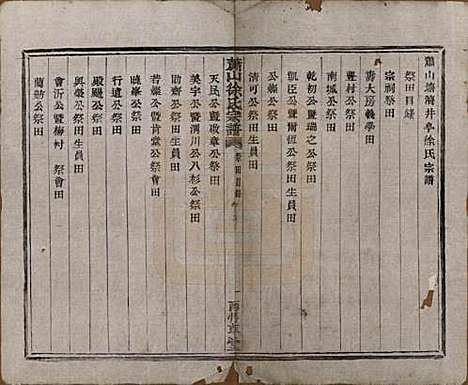 蕭山塘灣井亭徐氏宗譜
祭田目錄
宗祠祭田
壽大房義學田
豐村公祭田
南城公祭田
乾初公暨瑞之公祭田
凱臣公暨爾恆公祭田生員田
清可公祭田
蕭山徐氏宗譜
祭田目錄
一
天民公暨啟章公祭田
美宇公暨渭川公八杉公祭田
助齋公祭田生員田
若巖公暨肯堂公祭田
曉峯公祭田
行遠公祭田
殿颺公祭田生員田
與榮公祭田生員田
會沂公暨梅村 祭會田
蘭舫公祭田